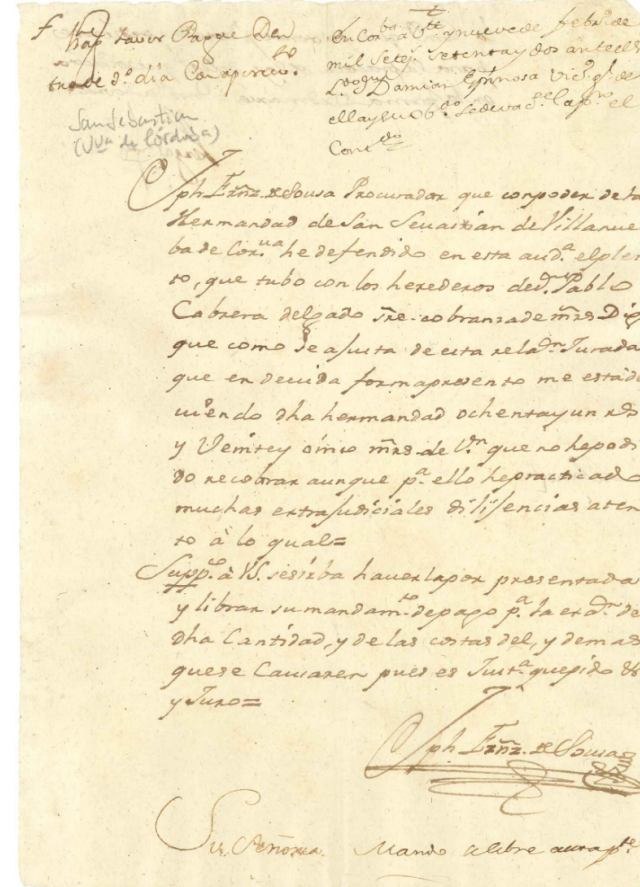 f
Pague Den
tro de 3.º día Con apercivto.
En Corba a Vte y nueve de febro. de
mil setezs. setenta y dos ante el s
Damian Espinosa Vico. gl. de
San Sebastian
(Vva de Córdoba)
Jph Frnz. de Sousa Procurador que con poder de la
Hermandad de San Sevastian de Villanue
ba de Cor.va he defendido en esta aud.a el plei
to, que tubo con los herederos de d.n Pablo
Cabrera delgado sre. cobranza de mrs Digo
que como se ajusta de esta relaz.n Jurada
que en devida forma presento me está de
viendo dha hermandad ochenta y un rs
y Veinte y cinco mrs. de V.n que no he podi
do recobrar aunque p.a ello he practicado
muchas extrajudiciales dilijencias aten
to à lo qual=
Suppco. à VS. se sirba haverla por presentada
y librar su mandam.to de pago p.a la exaz.n de
dha Cantidad, y de las costas del, y demas
que se Causaren pues es Just.a que pido &
y Juro=
Jph Frnz. de Sousa
Su Señoria Mando se libre